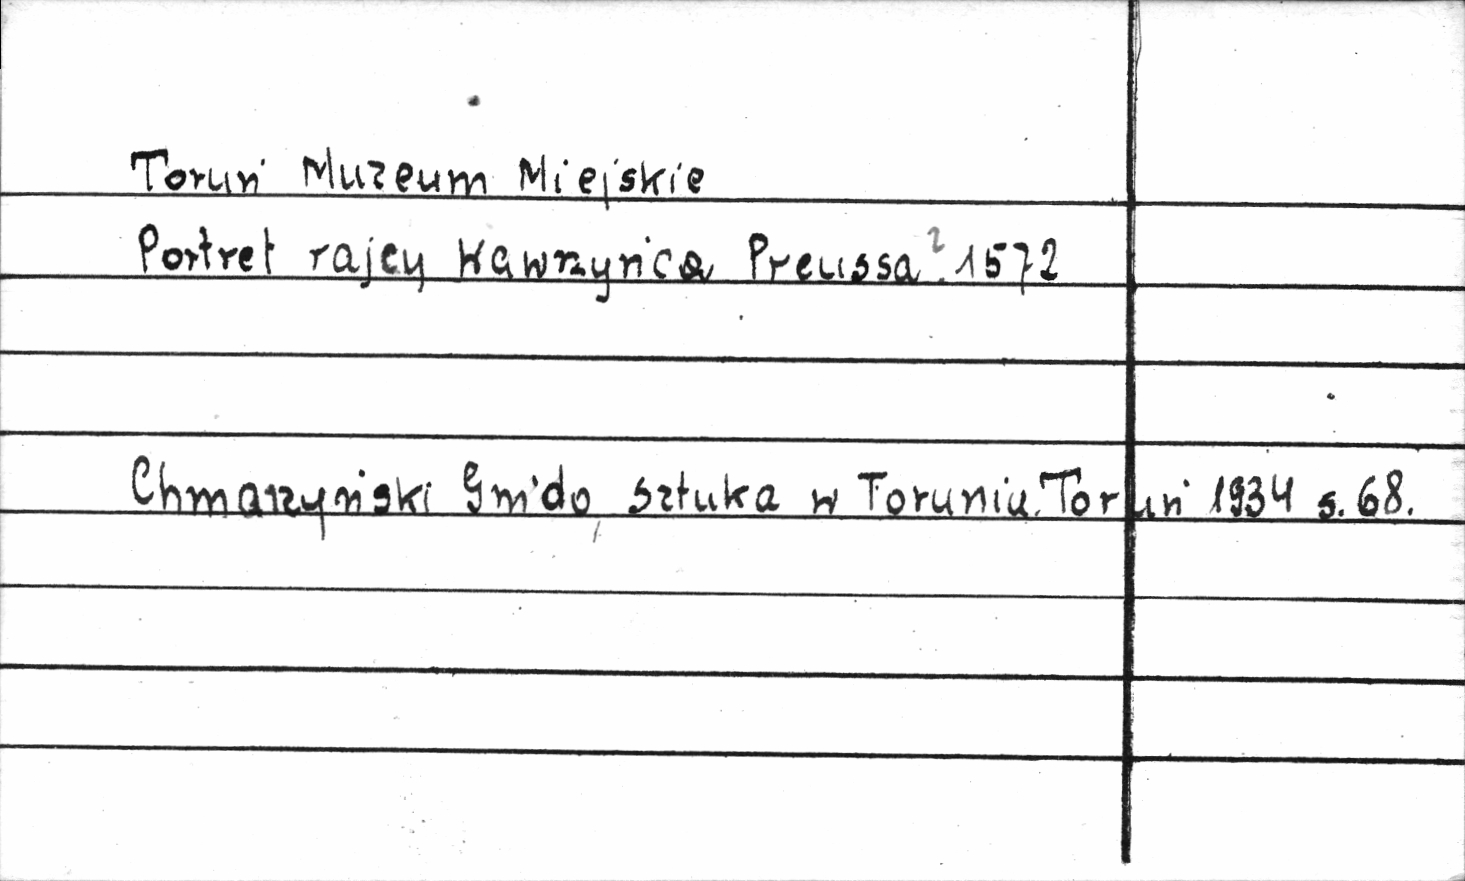 Toruń Muzeum Miejskie
Portret rajcy Wawrzyńca Preussa? 1572
Chmarzyński Gwido, Sztuka w Toruniu. Toruń 1934 s. 68.